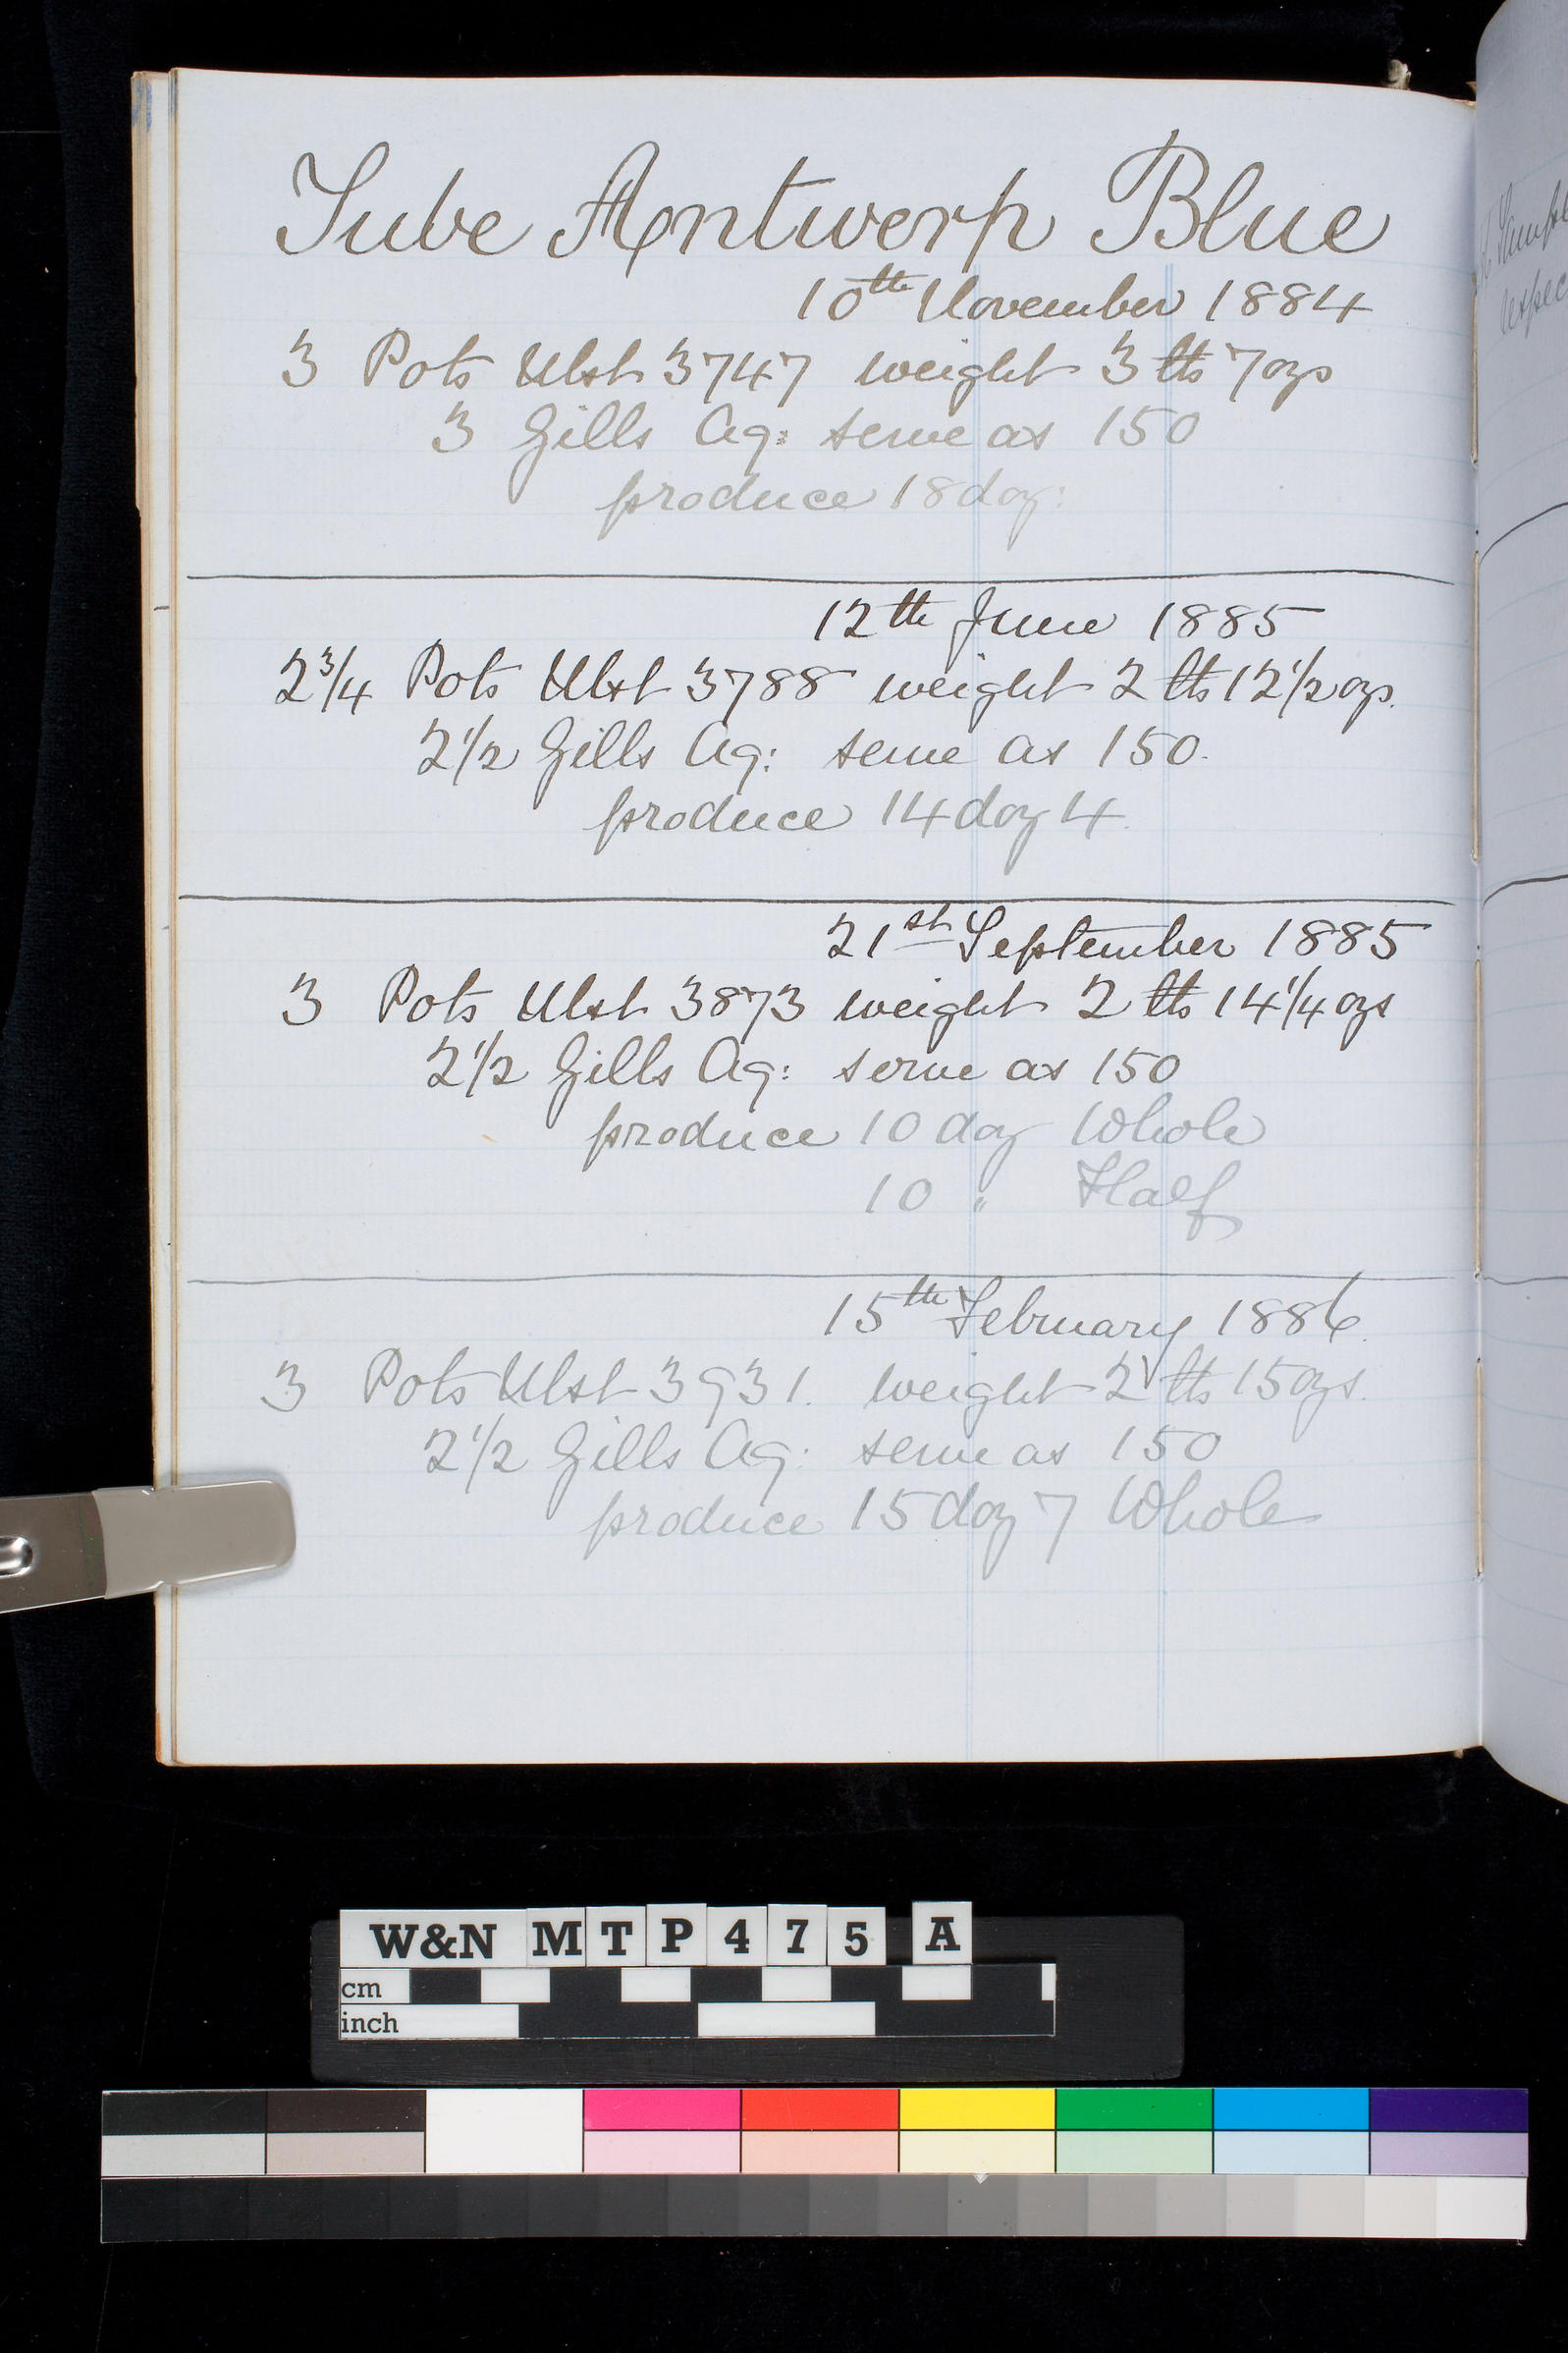 Tube Antwerp Blue
10th November 1884
3 Pots Ulst 3747 weight 3 lbs 7 ozs
3 Gills Aq: serve as 150
produce 18 doz:
12th June 1885
2 3/4 Pots Ulst 3788 weight 2 lbs 12 1/2 ozs.
2 1/2 Gills Aq: serve as 150.
produce 14 doz 4.
21st September 1885
3 Pots Ulst 3873 weight 2 lbs 14 1/4 ozs
2 1/2 Gills Aq: serve as 150
produce 10 doz Whole
10 " Half
15th February 1886.
3 Pots Ulst 3931. weight 2 lbs 15 ozs.
2 1/2 Gills Aq: serve as 150
produce 15 doz 7 Whole
W&N MTP475 A
cm
inch